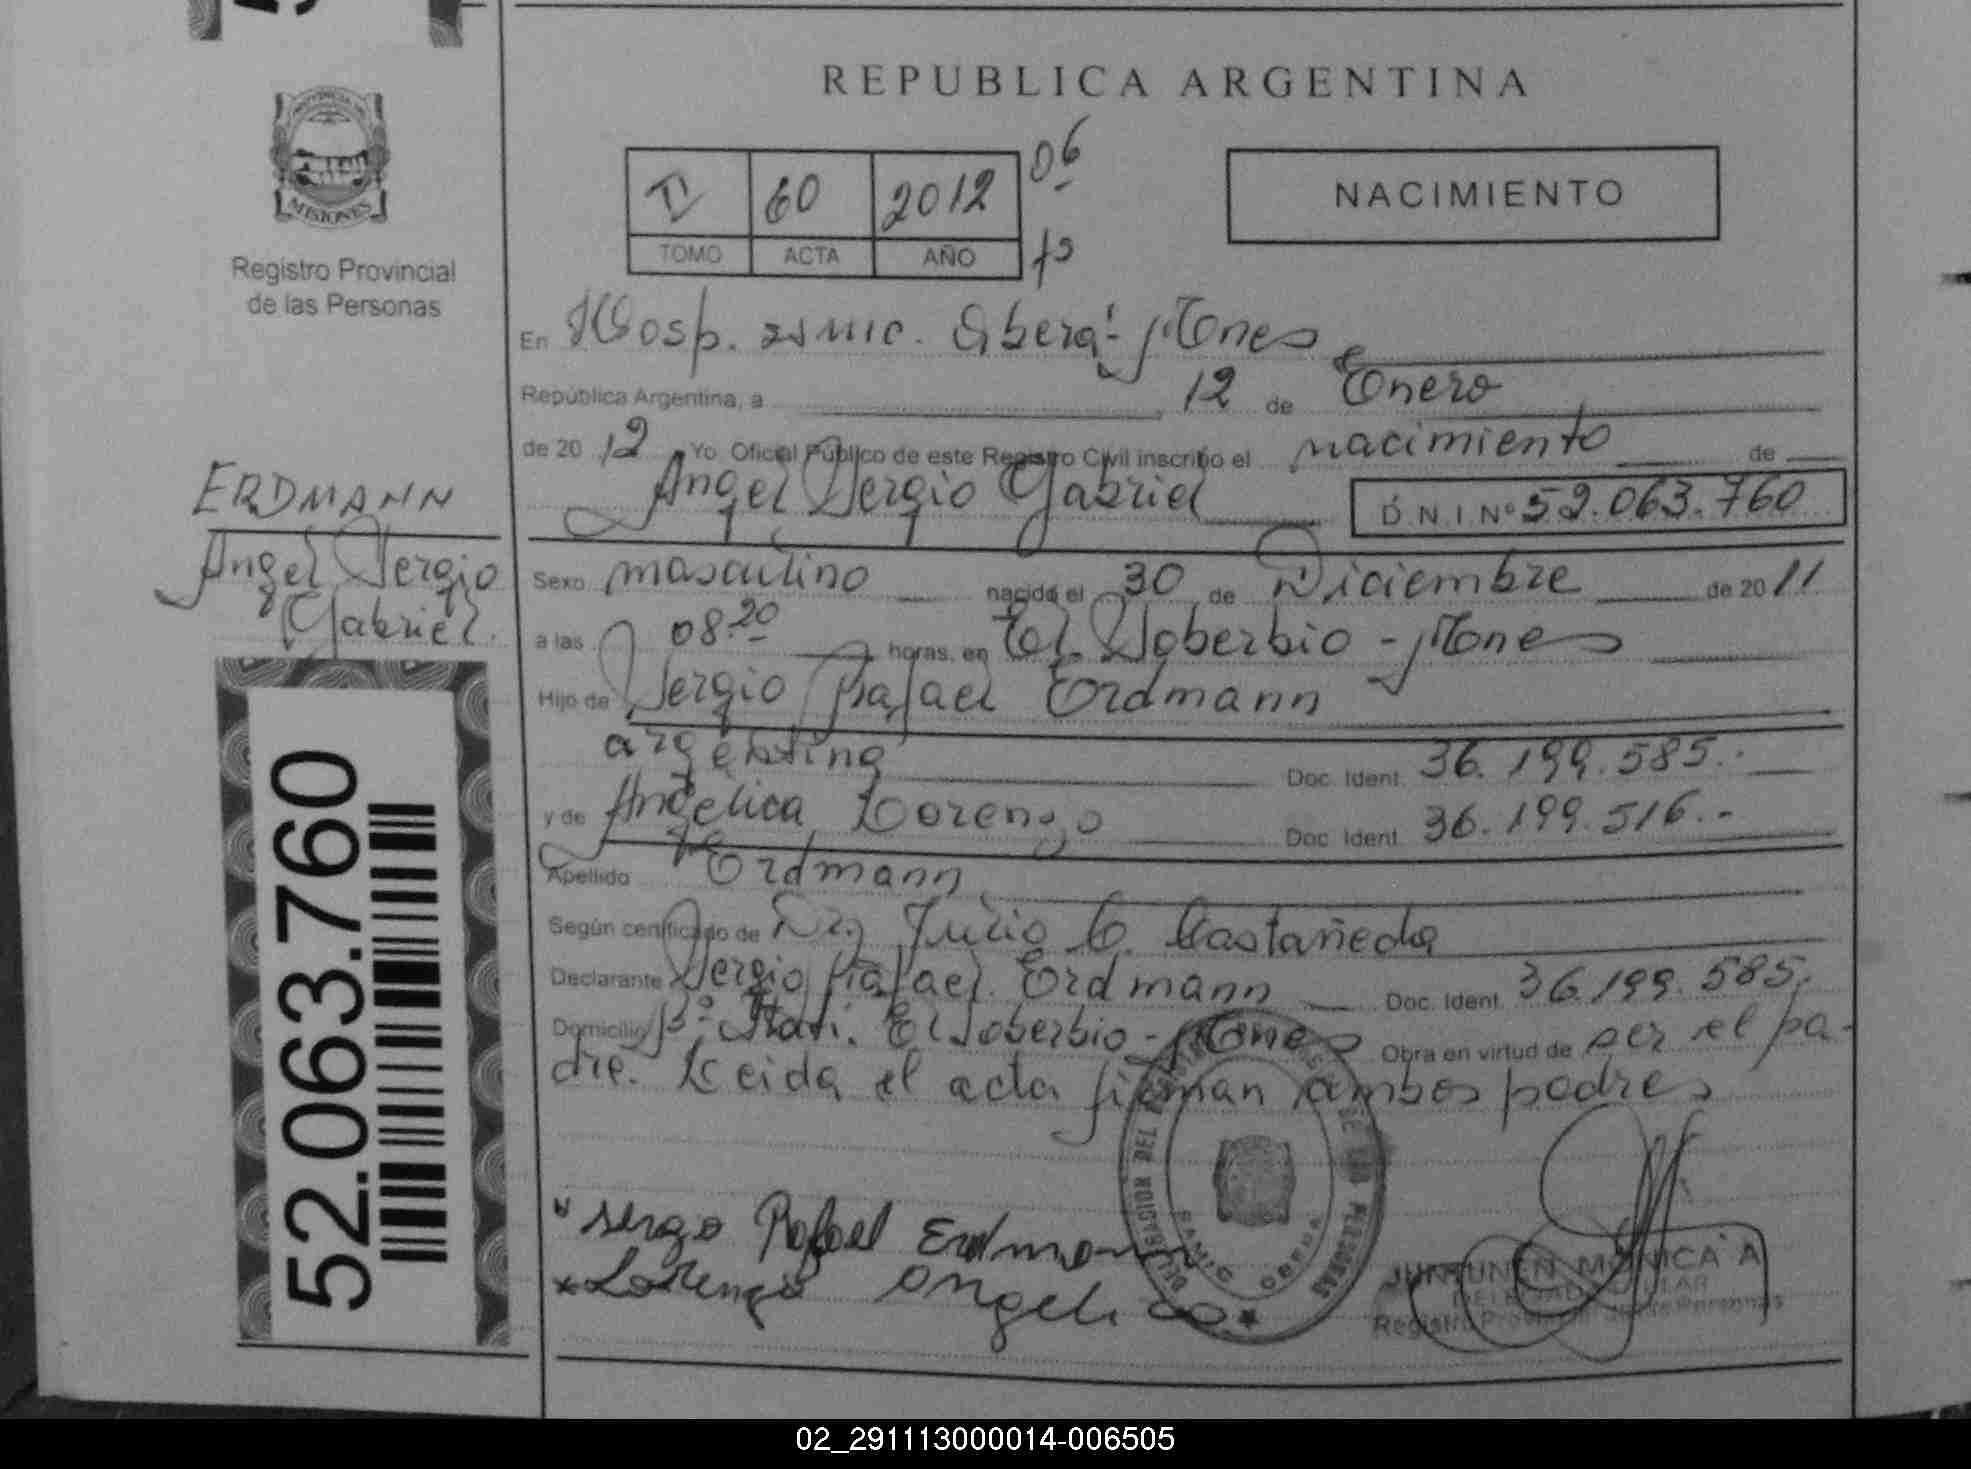 REPUBLICA ARGENTINA
PROVINCIA DE
MISIONES
Registro Provincial
de las Personas
60 2012 06
TOMO ACTA AÑO
NACIMIENTO
En Hosp. Oberá - Mnes
República Argentina, a 12 de Enero
de 2012 Yo Oficial Público de este Registro Civil inscribo el nacimiento de
Angel Sergio Gabriel D.N.I.Nº 52.063.760
ERDMANN
Angel Sergio
Gabriel.
Sexo masculino nacido el 30 de Diciembre de 2011
a las 08.20 horas, en El Soberbio - Mnes
Hijo de Sergio Rafael Erdmann
argentina Doc. Ident. 36.199.585.-
y de Angelica Lorenzo Doc. Ident. 36.199.516.-
Apellido Erdmann
Según certificado de Dr. Julio C. Castañeda
Declarante Sergio Rafael Erdmann Doc. Ident. 36.199.585.
Domicilio Bº Itatí. El Soberbio - Mnes Obra en virtud de ser el pa-
dre. Leida el acta firman ambos padres
52.063.760
* Sergo Rafael Erdmann
* Lorenzo Angelica
DELEGACION DEL DE LAS PERSONAS
JUNTUNEN MONICA A
DELEGADA TITULAR
Registro Provincial de las Personas
02_291113000014-006505